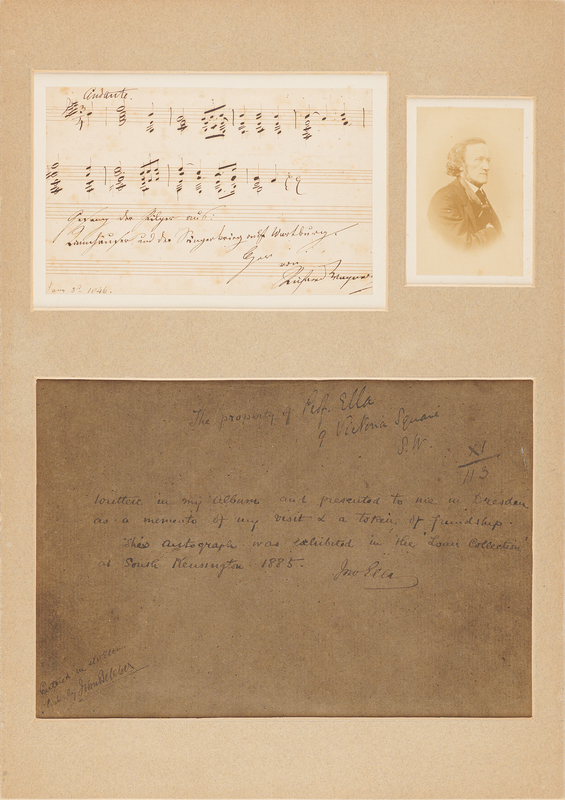 Andante.
Gesang der Pilger aus:
Tannhäuser und der Sängerkrieg auf Wartburg.
von
Richard Wagner
1846.
The property of Prof. Ella
9 Victoria Square
S.W.
XI
113
Written in my Album and presented to me in Dresden
as a memento of my visit & a token of friendship.
This autograph was exhibited in the "Loan Collection"
at South Kensington 1885.
Jno Ella